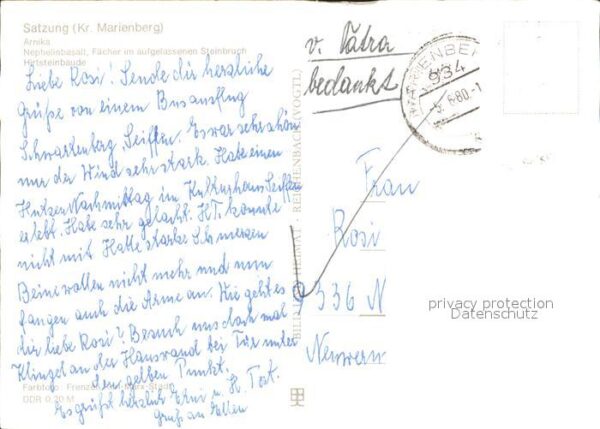 Satzung (Kr. Marienberg)
Arnika
Nephelinbasalt, Fächer im aufgelassenen Steinbruch
Hirtsteinbaude
Liebe Rosi! Sende dir herzliche
Grüße von einem Busausflug
Schwarzenberg, Seiffen. Es war sehr schön
nur der Wind sehr stark. Habe einen
Hutzen Nachmittag im Kulturhaus Seiffen
erlebt. Habe sehr gelacht. H.T. konnte
nicht mit Hatte starke Schmerzen
Beine wollen nicht mehr und nun
fangen auch die Arme an. Wie geht es
dir liebe Rosi? Besuch uns doch mal
Klingel an der Hauswand bei Tür unter
dem gelben Punkt.
Es grüßt herzlich Erni u. H. Tert.
Gruß an Ellen
Farbfoto: Frenzel,
DDR 0,20 M
BILD HEIMAT REICHENBACH (VOGTL)
v. Tatra
bedankt
MARIENBERG
934
6.80.-1
Frau
Rosi
9336 N
privacy protection
Datenschutz